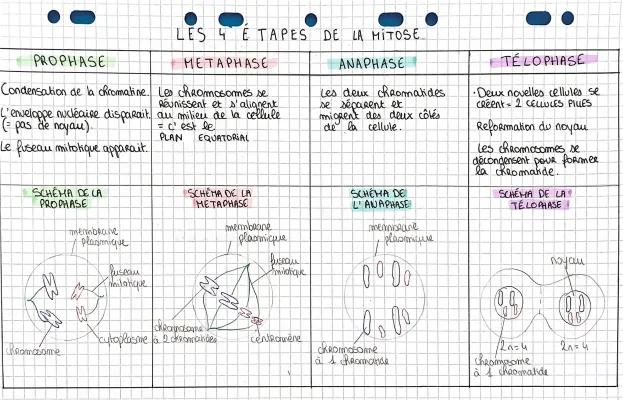 LES 4 ÉTAPES DE LA MITOSE
PROPHASE
Condensation de la chromatine.
L'enveloppe nucléaire disparait.
(= pas de noyau).
Le fuseau mitotique apparait.
METAPHASE
Les chromosomes se
réunissent et s'alignent
au milieu de la cellule
= c'est le
PLAN EQUATORIAL
ANAPHASE
Les deux chromatides
se séparent et
migrent des deux côtés
de la cellule.
TÉLOPHASE
• Deux novelles cellules se
créent = 2 CELLULES FILLES
Reformation du noyau
Les chromosomes se
décondensent pour former
la chromatide.
SCHÉMA DE LA
PROPHASE
membrane
plasmique
fuseau
mitotique
chromosome
cytoplasme
SCHÉMA DE LA
METAPHASE
membrane
plasmique
fuseau
mitotique
chromosome
à 2 chromatides
centromère
SCHÉMA DE
L'ANAPHASE
membrane
plasmique
chromosome
à 1 chromatide
SCHÉMA DE LA
TÉLOPHASE
noyau
2n=4
2n=4
chromosome
à 1 chromatide